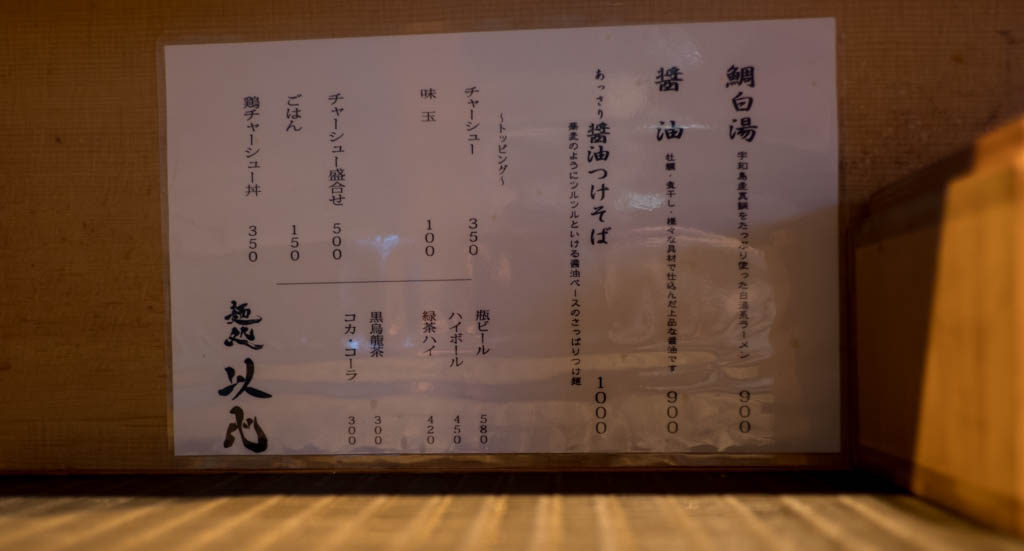 鯛白湯
宇和島産真鯛をたっぷり使った白湯系ラーメン
900
醤油
牡蠣・煮干し・様々な具材で仕込んだ上品な醤油です
900
あっさり醤油つけそば
蕎麦のようにツルツルといける醤油ベースのさっぱりつけ麺
1000
~トッピング~
チャーシュー 350
味玉 100
チャーシュー盛合せ 500
ごはん 150
鶏チャーシュー丼 350
瓶ビール 580
ハイボール 450
緑茶ハイ 420
黒烏龍茶 300
コカ・コーラ 300
麺処 以心